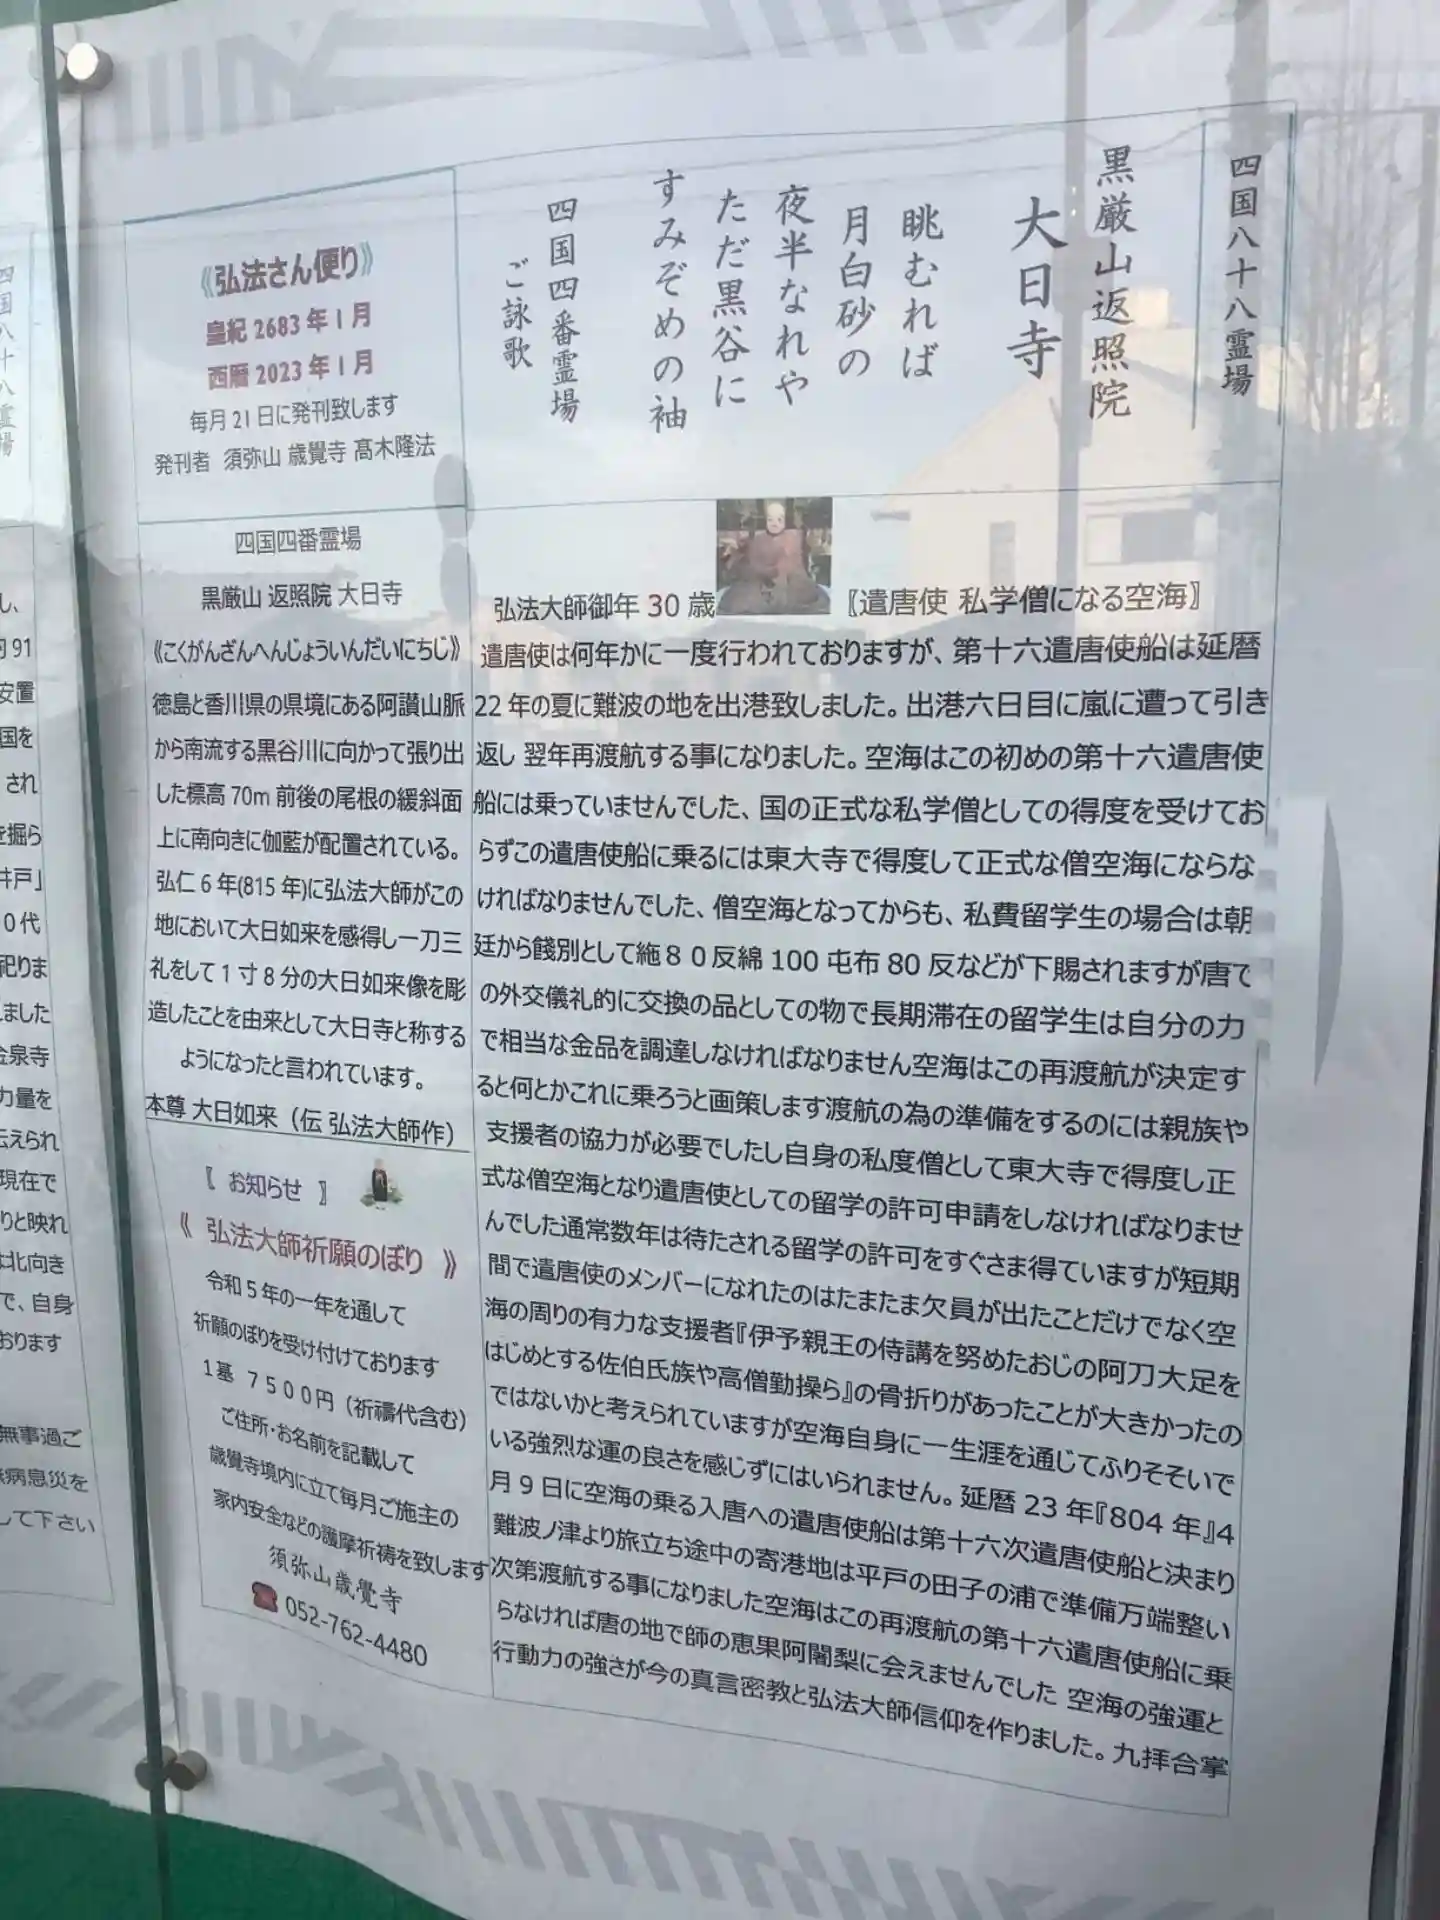 四国八十八霊場
黒厳山返照院
大日寺
眺むれば
月白砂の
夜半なれや
ただ黒谷に
すみぞめの袖
四国四番霊場
ご詠歌
《弘法さん便り》
皇紀 2683 年 1 月
西暦 2023 年 1 月
毎月 21 日に発刊致します
発刊者 須弥山 歳覺寺 髙木隆法
四国四番霊場
黒厳山 返照院 大日寺
《こくがんざんへんじょういんだいにちじ》
徳島と香川県の県境にある阿讃山脈
から南流する黒谷川に向かって張り出
した標高 70m 前後の尾根の緩斜面
上に南向きに伽藍が配置されている。
弘仁 6 年(815 年)に弘法大師がこの
地において大日如来を感得し一刀三
礼をして 1 寸 8 分の大日如来像を彫
造したことを由来として大日寺と称する
ようになったと言われています。
本尊 大日如来（伝 弘法大師作）
〖 お知らせ 〗
《 弘法大師祈願のぼり 》
令和 5 年の一年を通して
祈願のぼりを受け付けております
1 基 7500円（祈禱代含む）
ご住所・お名前を記載して
歳覺寺境内に立て毎月ご施主の
家内安全などの護摩祈祷を致します
須弥山歳覺寺
☎ 052-762-4480
弘法大師御年 30 歳 〖遣唐使 私学僧になる空海〗
遣唐使は何年かに一度行われておりますが、第十六遣唐使船は延暦
22 年の夏に難波の地を出港致しました。出港六日目に嵐に遭って引き
返し 翌年再渡航する事になりました。空海はこの初めの第十六遣唐使
船には乗っていませんでした、国の正式な私学僧としての得度を受けてお
らずこの遣唐使船に乗るには東大寺で得度して正式な僧空海にならな
ければなりませんでした、僧空海となってからも、私費留学生の場合は朝
廷から餞別として絁８０反綿 100 屯布 80 反などが下賜されますが唐で
の外交儀礼的に交換の品としての物で長期滞在の留学生は自分の力
で相当な金品を調達しなければなりません空海はこの再渡航が決定す
ると何とかこれに乗ろうと画策します渡航の為の準備をするのには親族や
支援者の協力が必要でしたし自身の私度僧として東大寺で得度し正
式な僧空海となり遣唐使としての留学の許可申請をしなければなりませ
んでした通常数年は待たされる留学の許可をすぐさま得ていますが短期
間で遣唐使のメンバーになれたのはたまたま欠員が出たことだけでなく空
海の周りの有力な支援者『伊予親王の侍講を努めたおじの阿刀大足を
はじめとする佐伯氏族や高僧勤操ら』の骨折りがあったことが大きかったの
ではないかと考えられていますが空海自身に一生涯を通じてふりそそいで
いる強烈な運の良さを感じずにはいられません。延暦 23 年『804 年』4
月 9 日に空海の乗る入唐への遣唐使船は第十六次遣唐使船と決まり
難波ノ津より旅立ち途中の寄港地は平戸の田子の浦で準備万端整い
次第渡航する事になりました空海はこの再渡航の第十六遣唐使船に乗
らなければ唐の地で師の恵果阿闍梨に会えませんでした 空海の強運と
行動力の強さが今の真言密教と弘法大師信仰を作りました。九拝合掌
四国八十八霊場
し、
91
安置
国を
され
を掘ら
井戸」
0 代
祀りま
ました
金泉寺
力量を
伝えられ
現在で
りと映れ
は北向き
で、自身
おります
無事過ご
無病息災を
して下さい